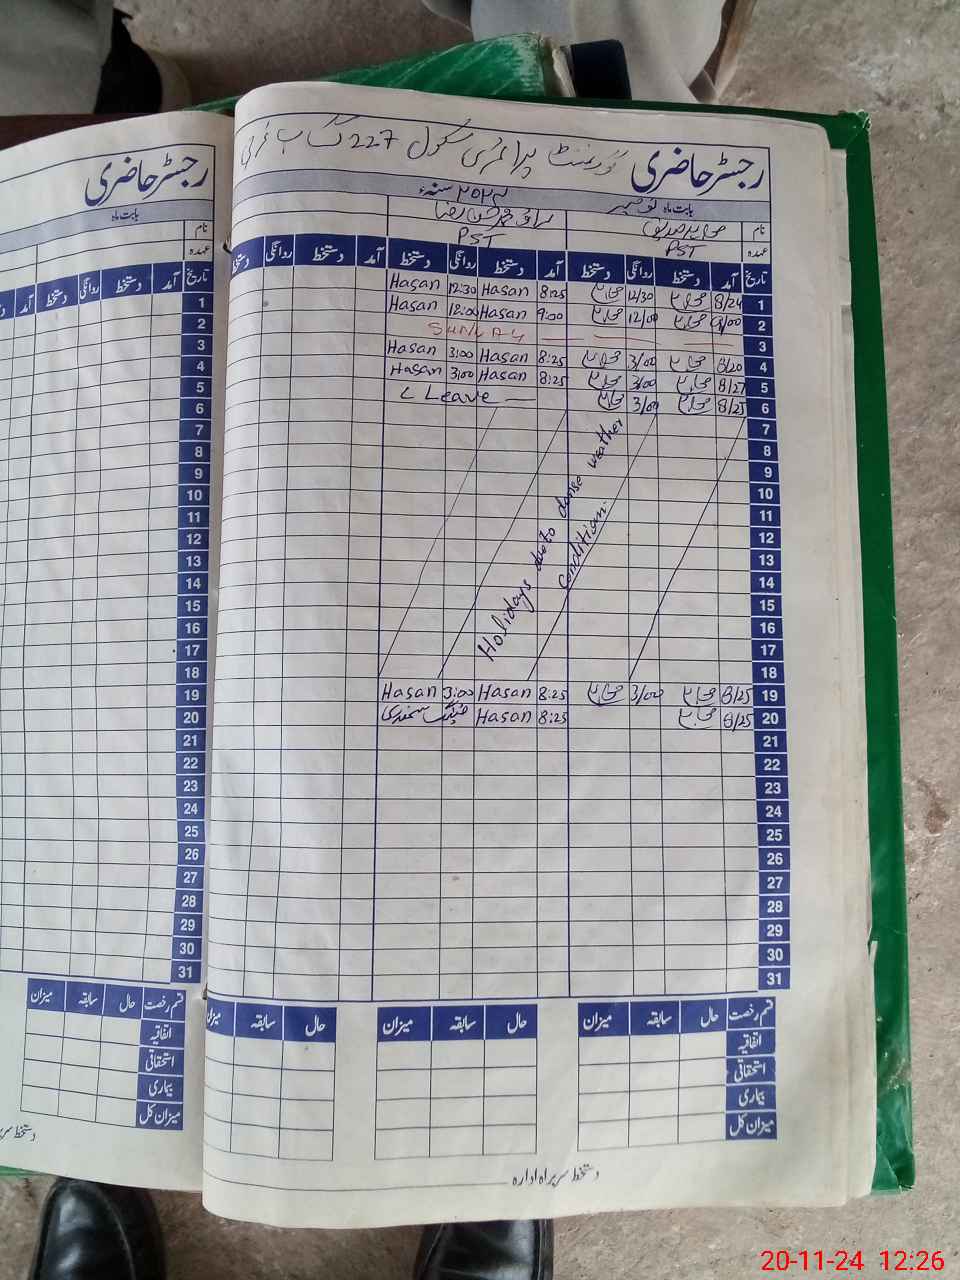 گورنمنٹ پرائمری سکول 227 گ ب غربی
رجسٹر حاضری
بابت ماہ نومبر ۲۰۲۴ سنہء
نام
عہدہ PST PST
تاریخ آمد دستخط روانگی دستخط آمد دستخط روانگی دستخط آمد دستخط روانگی دستخط
1 8/24 12/30 8:25 Hasan 12:30 Hasan
2 9/00 12/00 9:00 Hasan 12:00 Hasan
3 SUNDAY
4 8/20 3/00 8:25 Hasan 3:00 Hasan
5 8/27 3/00 8:25 Hasan 3:00 Hasan
6 8/25 3/00 C Leave
7
8
9
10
11
12
13
14
15
16
17
18
Holidays due to dense weather
condition.
19 8/25 3/00 8:25 Hasan 3:00 Hasan
20 8/25 8:25 Hasan
21
22
23
24
25
26
27
28
29
30
31
قسم رخصت حال سابقہ میزان حال سابقہ میزان حال سابقہ میزان
اتفاقیہ
استحقاقی
بیماری
میزان کل
دستخط سربراہ ادارہ
رجسٹر حاضری
بابت ماہ
نام
عہدہ
تاریخ آمد دستخط روانگی دستخط آمد
1
2
3
4
5
6
7
8
9
10
11
12
13
14
15
16
17
18
19
20
21
22
23
24
25
26
27
28
29
30
31
قسم رخصت حال سابقہ میزان
اتفاقیہ
استحقاقی
بیماری
میزان کل
دستخط
20-11-24 12:26